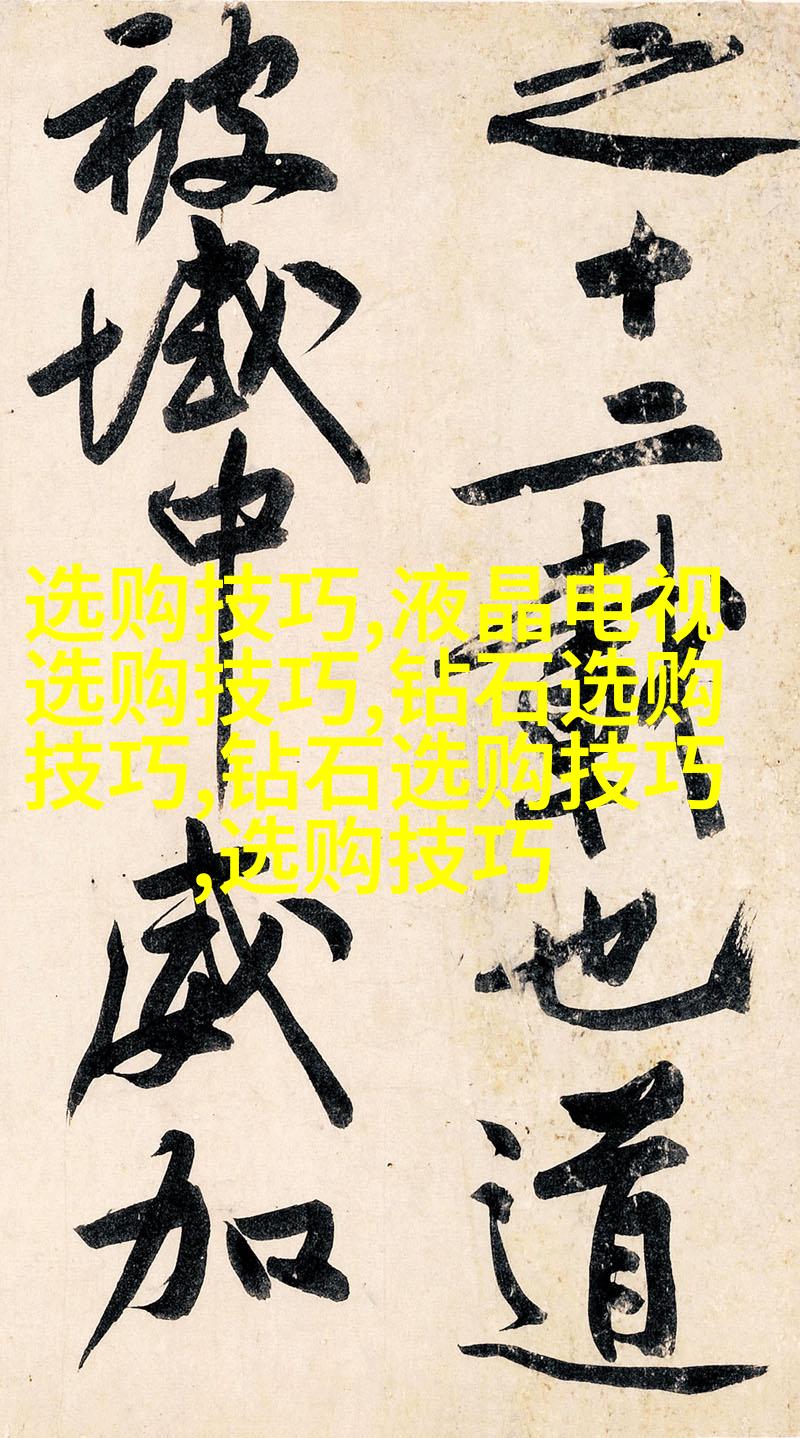 之十二載也道
被域中威加
选购技巧,液晶电视
选购技巧,钻石选购
技巧,钻石选购技巧
,选购技巧